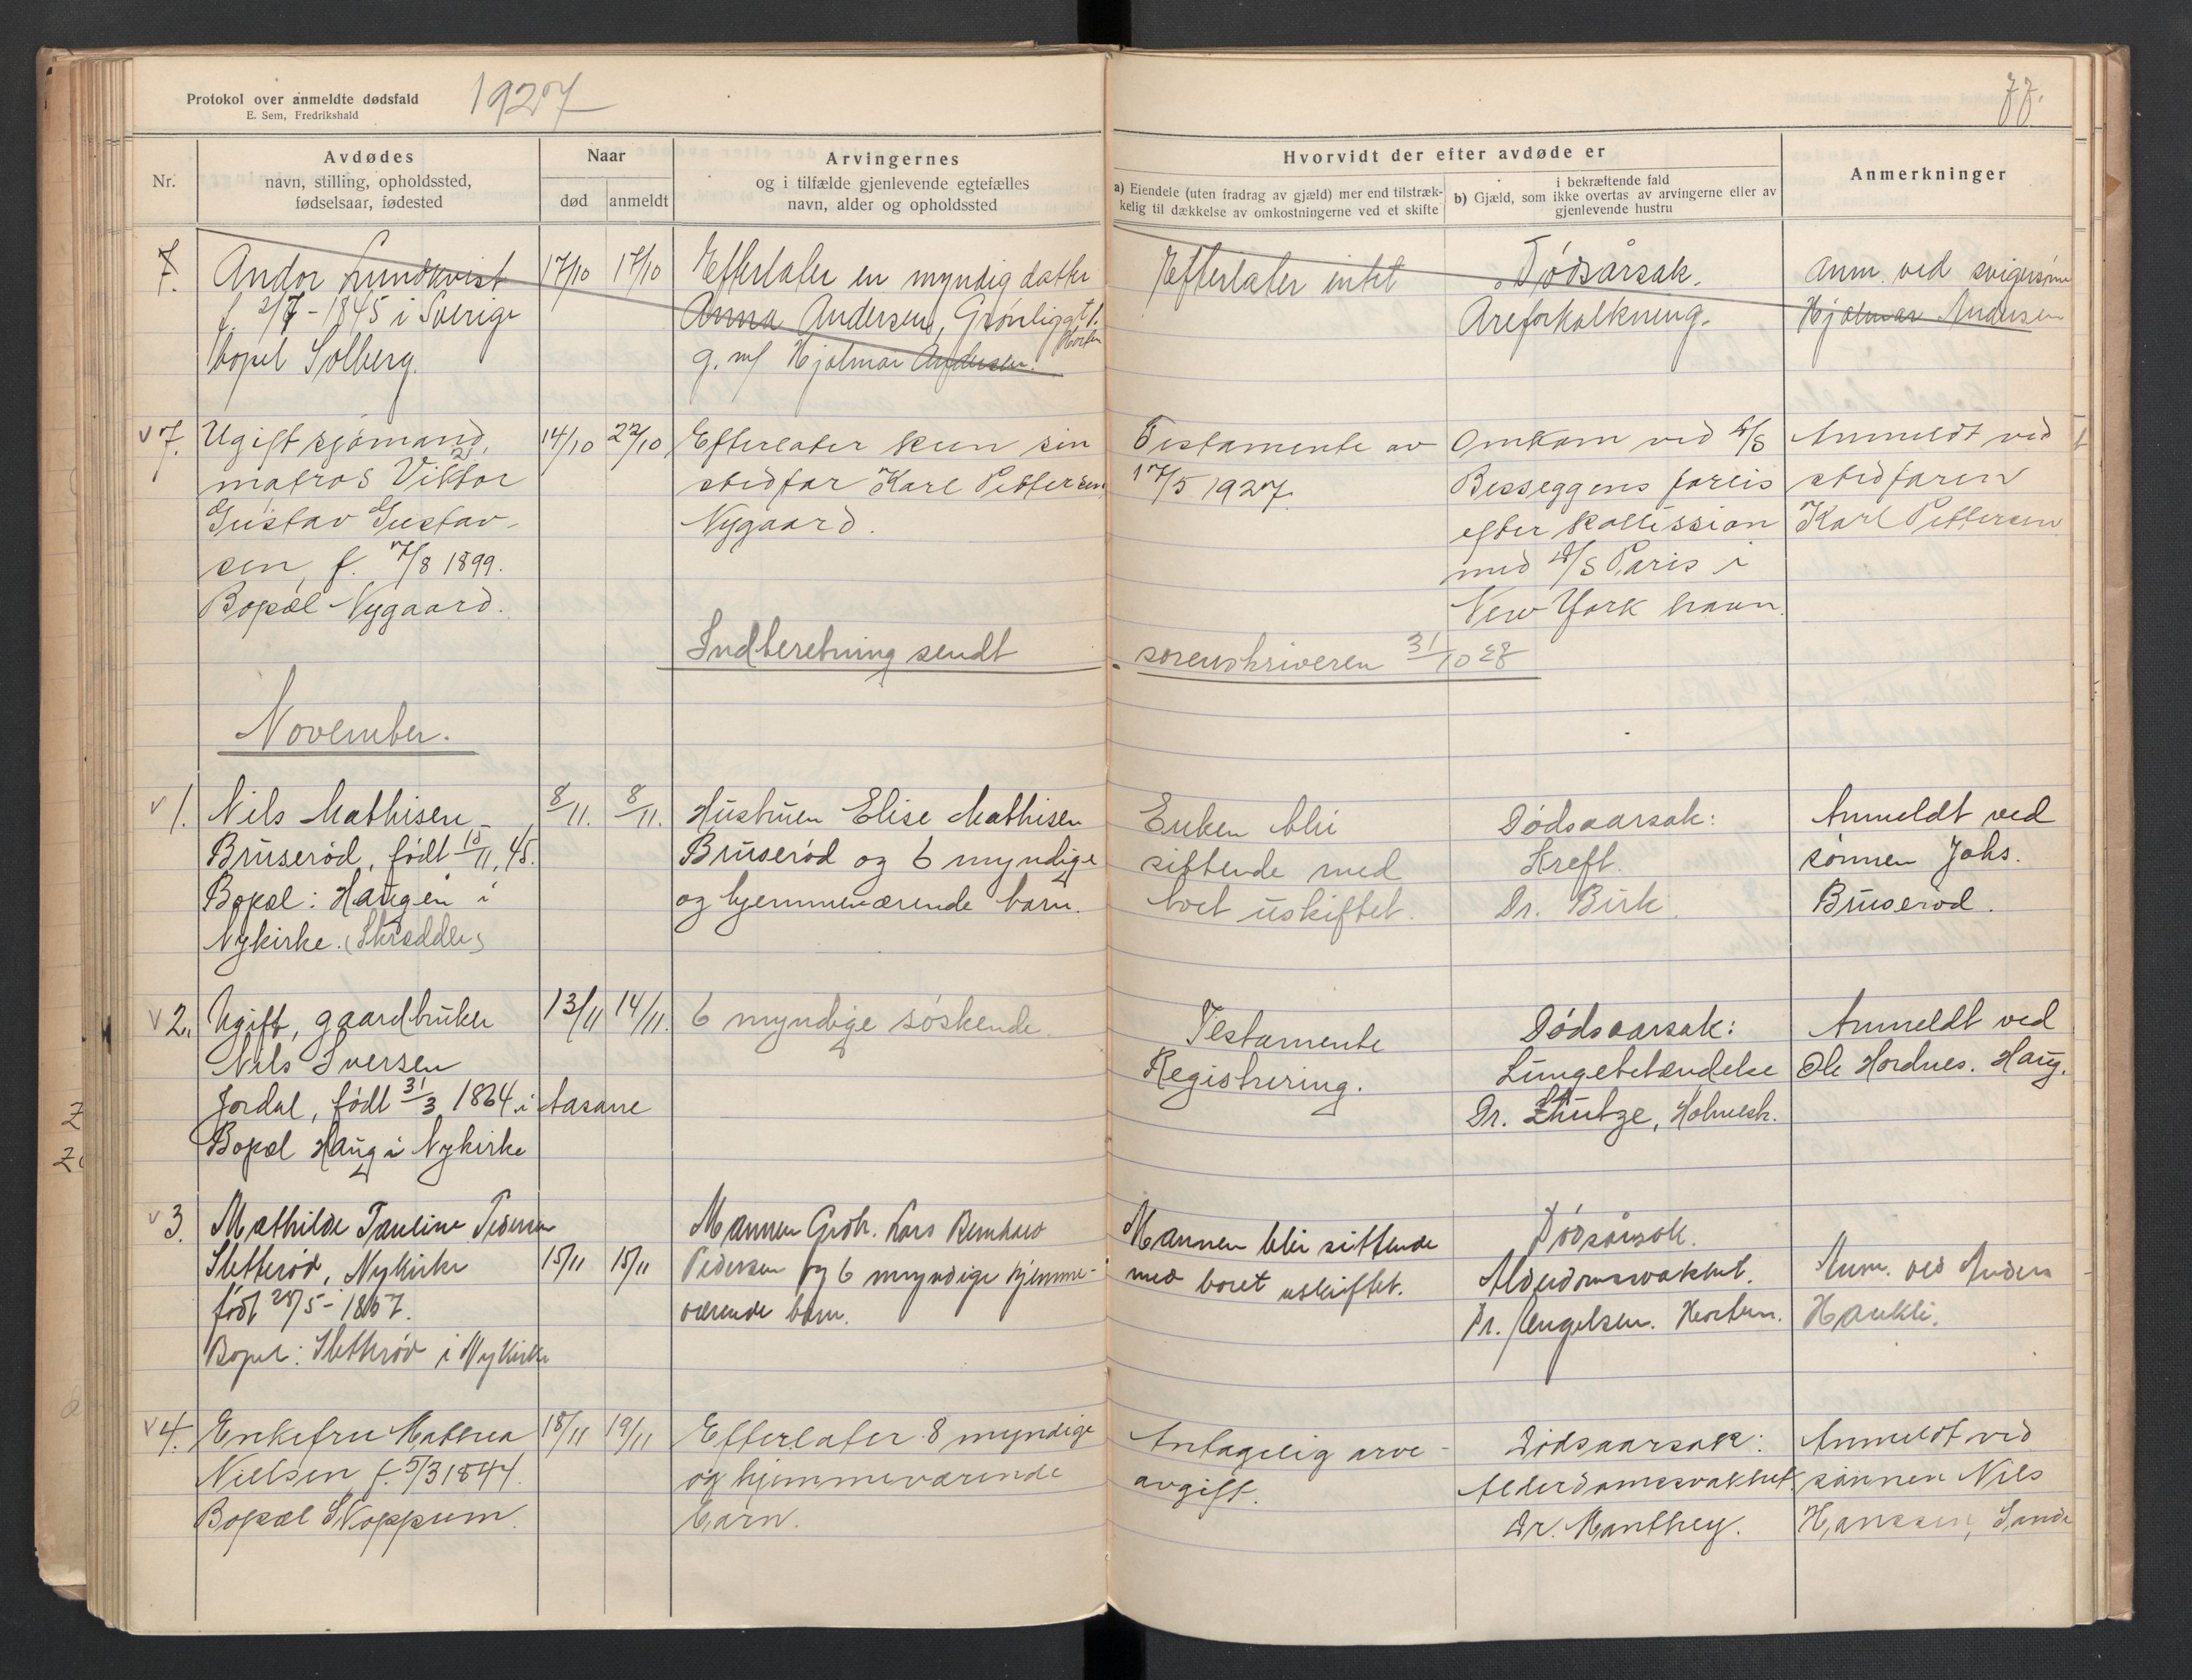 Protokol over anmeldte dødsfald
E. Sem, Fredrikshald
1927
77.
Nr.
Avdødes
navn, stilling, opholdssted,
fødselsaar, fødested
Naar
død
anmeldt
Arvingernes
og i tilfælde gjenlevende egtefælles
navn, alder og opholdssted
Hvorvidt der efter avdøde er
a) Eiendele (uten fradrag av gjæld) mer end tilstræk-
kelig til dækkelse av omkostningerne ved et skifte
i bekræftende fald
b) Gjæld, som ikke overtas av arvingerne eller av
gjenlevende hustru
Anmerkninger
7.
Andor Lundkvist
f. 2/7 - 1845 i Sverige
bopel Solberg.
17/10
17/10
Efterlater en myndig datter
Anna Andersen, Grønliggt 1.
Horten
g. m/ Hjalmar Andersen.
Efterlater intet
Dødsårsak.
Areforkalkning.
Anm. ved svigersønn
Hjalmar Andersen
v 7.
Ugift sjømand,
matros Viktor
Gustav Gustav-
sen, f. 7/8 1899.
Bopæl Nygaard.
14/10
22/10
Efterlater kun sin
stedfar Karl Pettersen,
Nygaard.
Testamente av
17/5 1927.
Omkom ved S/S
Besseggens forlis
efter kollission
med S/S Paris i
New York havn.
Anmeldt ved
stedfaren
Karl Pettersen
Indberetning sendt
sorenskriveren 31/10 27
November.
v 1.
Nils Mathisen
Bruserød, født 10/11, 45.
Bopæl: Haugen i
Nykirke. (Skrædder)
8/11.
8/11.
Hustruen Elise Mathisen
Bruserød og 6 myndige
og hjemmeværende barn.
Enken bli
sittende med
boet uskiftet.
Dødsaarsak:
Kreft.
Dr. Birk.
Anmeldt ved
sønnen Johs.
Bruserød.
v 2.
Ugift, gaardbruker
Nils Iversen
Jordal, født 31/3 1864 i Aasane
Bopæl Haug i Nykirke
13/11
14/11.
6 myndige søskende.
Testamente
Registrering.
Dødsaarsak:
Lungebetændelse
Dr. Holmesk.
Anmeldt ved
Ole Hordnes. Haug.
v 3.
Mathilde Pauline Pedersen
Sletterød, Nykirke
født 28/5 - 1857.
Bopel: Sletterød i Nykirke
15/11
15/11
Mannen Grdb. Lars Bernhard
Pedersen og 6 myndige hjemme-
værende barn.
Mannen blir sittende
med boet uskiftet.
Dødsårsak.
Alderdomssvakhet.
Dr. Horten.
Anm. ved Anders
Haukli.
v 4.
Enkefru Mathea
Nielsen, f. 5/3 1844.
Bopæl S Noppum.
18/11
19/11
Efterlater 8 myndige
og hjemmeværende
barn.
Antagelig arve-
avgift.
Dødsaarsak:
Alderdomssvakhet.
Dr. Manthey.
Anmeldt ved
sønnen Nils
Hanssen, Sande